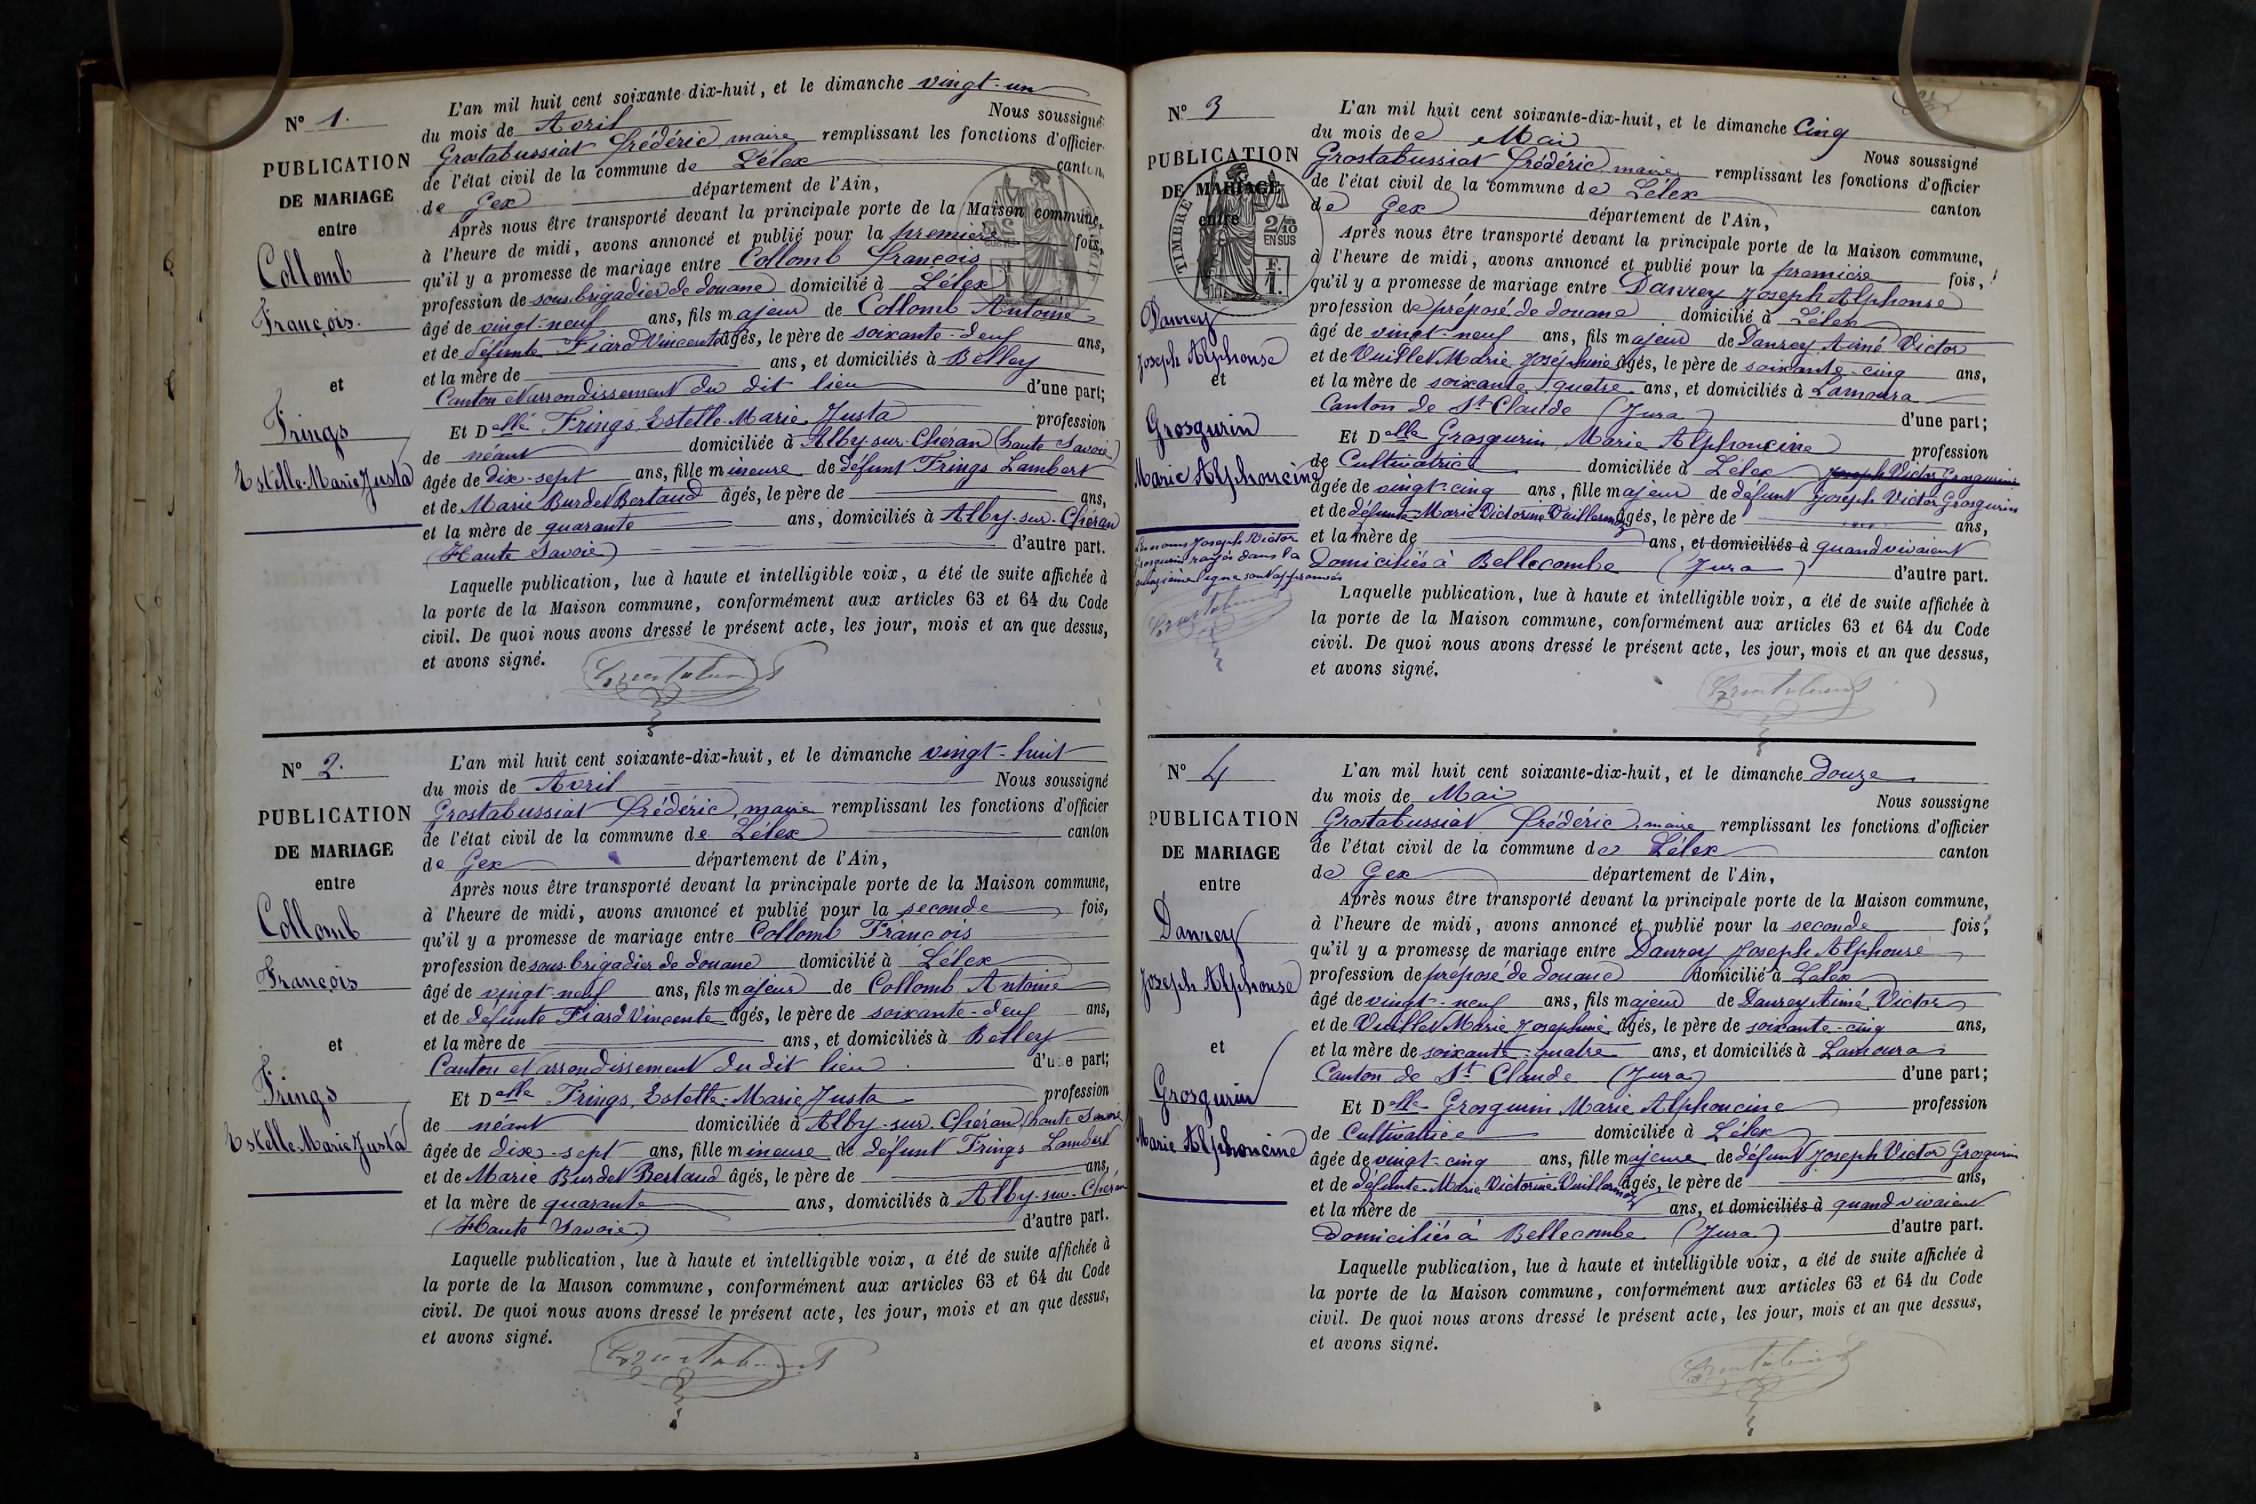 N° 1.
PUBLICATION
DE MARIAGE
entre
Collomb
François.
et
Frings
Estelle-Marie Justa
L'an mil huit cent soixante-dix-huit, et le dimanche vingt-un
du mois de Avril Nous soussigné
Grostabussiat frédéric, maire remplissant les fonctions d'officier
de l'état civil de la commune de Lélex canton
de Gex département de l'Ain,
Après nous être transporté devant la principale porte de la Maison commune,
à l'heure de midi, avons annoncé et publié pour la première fois,
qu'il y a promesse de mariage entre Collomb françois
profession de sous-brigadier de douane domicilié à Lélex
âgé de vingt-neuf ans, fils majeur de Collomb Antoine
et de défunte Fiard Vincente âgés, le père de soixante-deux ans,
et la mère de ans, et domiciliés à Belley
Canton et arrondissement du dit lieu d'une part;
Et Delle Frings, Estelle-Marie Justa profession
de néant domiciliée à Alby-sur-Chéran (haute Savoie)
âgée de dix-sept ans, fille mineure de défunt Frings Lambert
et de Marie Burdet Bertaud âgés, le père de ans,
et la mère de quarante ans, domiciliés à Alby-sur-Chéran
(Haute Savoie) d'autre part.
Laquelle publication, lue à haute et intelligible voix, a été de suite affichée à
la porte de la Maison commune, conformément aux articles 63 et 64 du Code
civil. De quoi nous avons dressé le présent acte, les jour, mois et an que dessus,
et avons signé.
N° 2.
PUBLICATION
DE MARIAGE
entre
Collomb
François
et
Frings
Estelle-Marie Justa
L'an mil huit cent soixante-dix-huit, et le dimanche vingt-huit
du mois de Avril Nous soussigné
Grostabussiat frédéric, maire remplissant les fonctions d'officier
de l'état civil de la commune de Lélex canton
de Gex département de l'Ain,
Après nous être transporté devant la principale porte de la Maison commune,
à l'heure de midi, avons annoncé et publié pour la seconde fois,
qu'il y a promesse de mariage entre Collomb François
profession de sous-brigadier de douane domicilié à Lélex
âgé de vingt-neuf ans, fils majeur de Collomb Antoine
et de défunte Fiard Vincente âgés, le père de soixante-deux ans,
et la mère de ans, et domiciliés à Belley
Canton et arrondissement du dit lieu d'une part;
Et Delle Frings, Estelle-Marie Justa profession
de néant domiciliée à Alby-sur-Chéran (haute Savoie)
âgée de dix-sept ans, fille mineure de défunt Frings Lambert
et de Marie Burdet Bertaud âgés, le père de ans,
et la mère de quarante ans, domiciliés à Alby-sur-Chéran
(Haute Savoie) d'autre part.
Laquelle publication, lue à haute et intelligible voix, a été de suite affichée à
la porte de la Maison commune, conformément aux articles 63 et 64 du Code
civil. De quoi nous avons dressé le présent acte, les jour, mois et an que dessus,
et avons signé.
N° 3
PUBLICATION
DE MARIAGE
entre
TIMBRE
2/10
EN SUS
Danrey
Joseph Alphonse
et
Grosgurin
Marie Alphoncine
Les noms Joseph Victor
Grosgurin rayés dans la
quinzième ligne sont approuvés
L'an mil huit cent soixante-dix-huit, et le dimanche Cinq
du mois de Mai Nous soussigné
Grostabussiat frédéric, maire remplissant les fonctions d'officier
de l'état civil de la commune de Lélex canton
de Gex département de l'Ain,
Après nous être transporté devant la principale porte de la Maison commune,
à l'heure de midi, avons annoncé et publié pour la première fois,
qu'il y a promesse de mariage entre Danrey Joseph Alphonse
profession de préposé de douane domicilié à Lélex
âgé de vingt-neuf ans, fils majeur de Danrey Aimé Victor
et de Vuillet Marie Joséphine âgés, le père de soixante-cinq ans,
et la mère de soixante quatre ans, et domiciliés à Lamoura
Canton de St Claude (Jura) d'une part;
Et Delle Grosgurin, Marie Alphoncine profession
de Cultivatrice domiciliée à Lélex Joseph Victor Grosgurin
âgée de vingt-cinq ans, fille majeur de défunt Joseph Victor Grosgurin
et de défunte Marie Victorine Vuillermoz âgés, le père de ans,
et la mère de ans, et domiciliés à quand vivaient
Domiciliés à Bellecombe (Jura) d'autre part.
Laquelle publication, lue à haute et intelligible voix, a été de suite affichée à
la porte de la Maison commune, conformément aux articles 63 et 64 du Code
civil. De quoi nous avons dressé le présent acte, les jour, mois et an que dessus,
et avons signé.
N° 4
PUBLICATION
DE MARIAGE
entre
Danrey
Joseph Alphonse
et
Grosgurin
Marie Alphoncine
L'an mil huit cent soixante-dix-huit, et le dimanche Douze
du mois de Mai Nous soussigné
Grostabussiat frédéric, maire remplissant les fonctions d'officier
de l'état civil de la commune de Lélex canton
de Gex département de l'Ain,
Après nous être transporté devant la principale porte de la Maison commune,
à l'heure de midi, avons annoncé et publié pour la seconde fois,
qu'il y a promesse de mariage entre Danrey Joseph Alphonse
profession de préposé de douane domicilié à Lélex
âgé de vingt-neuf ans, fils majeur de Danrey Aimé Victor
et de Vuillet Marie Josephine âgés, le père de soixante-cinq ans,
et la mère de soixante-quatre ans, et domiciliés à Lamoura
Canton de St Claude (Jura) d'une part;
Et Delle Grosgurin Marie Alphoncine profession
de Cultivatrice domiciliée à Lélex
âgée de vingt-cinq ans, fille majeure de défunt Joseph Victor Grosgurin
et de défunte Marie Victorine Vuillermoz âgés, le père de ans,
et la mère de ans, et domiciliés à quand vivaient
Domiciliés à Bellecombe (Jura) d'autre part.
Laquelle publication, lue à haute et intelligible voix, a été de suite affichée à
la porte de la Maison commune, conformément aux articles 63 et 64 du Code
civil. De quoi nous avons dressé le présent acte, les jour, mois et an que dessus,
et avons signé.